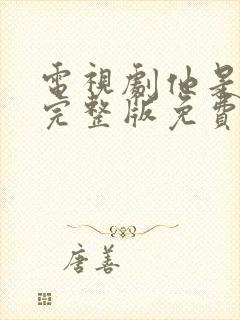 電視劇他是
完整版免費
唐善